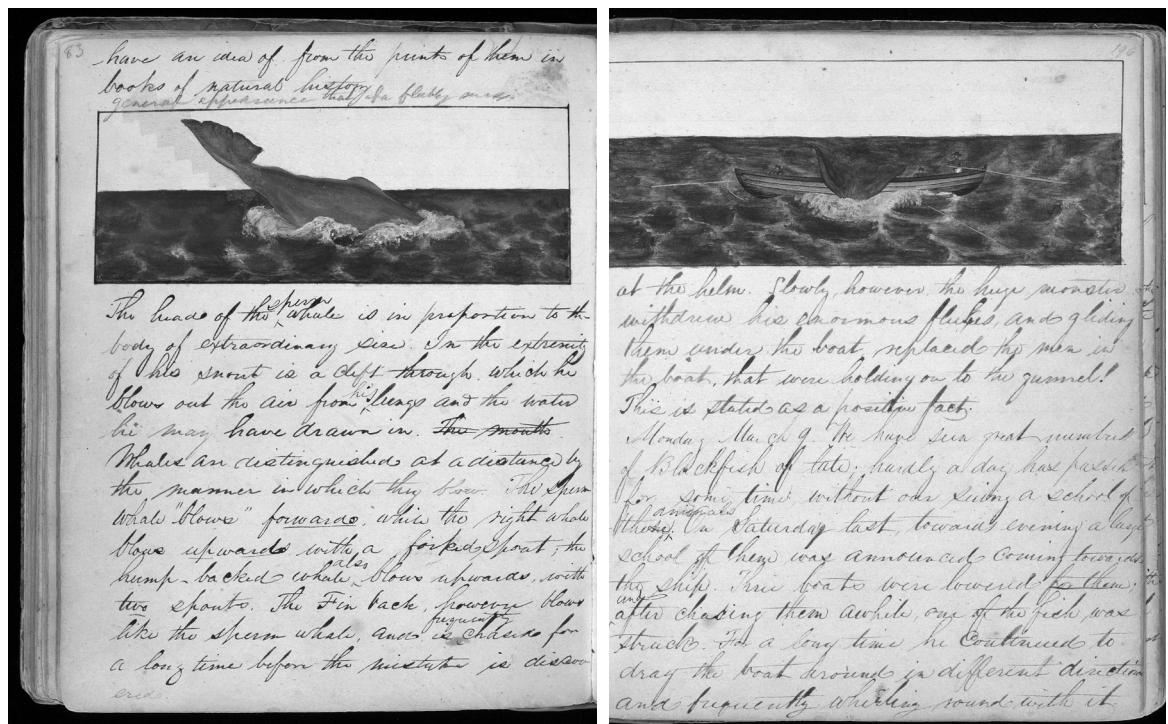 83
have an idea of from the prints of them in
books of natural history
general appearance that of a flabby mass.
The head of the sperm whale is in proportion to the
body of extraordinary size. In the extremity
of his snout is a cleft through which he
blows out the air from his lungs and the water
he may have drawn in. The mouth
Whales are distinguished at a distance by
the manner in which they blow. The sperm
whale "blows" forwards, while the right whale
blows upwards with a forked spout; the
hump-backed whale also blows upwards, with
two spouts. The Fin back, however blows
like the sperm whale, and is frequently chased for
a long time before the mistake is discov
ered
at the helm. Slowly, however, the huge monster
withdrew his enormous flukes, and gliding
them under the boat, replaced the men in
the boat, that were holding on to the gunnel!
This is stated as a positive fact.
Monday March 9. We have seen great numbers
of Blackfish of late; hardly a day has passed
for some time without our seeing a school of
these animals. On Saturday last, towards evening a large
school of them was announced coming towards
the ship. Three boats were lowered for them;
and after chasing them awhile, one of the fish was
struck. For a long time he continued to
drag the boat around in different direction
and frequently whirling round with it